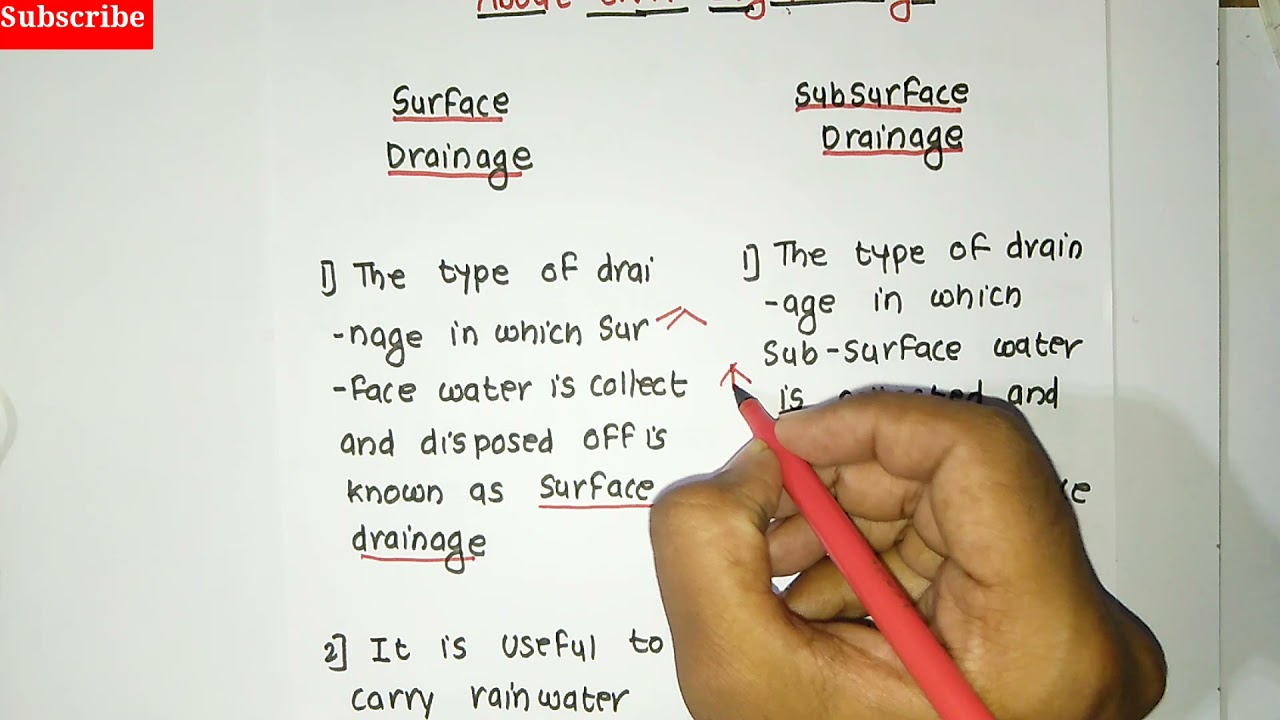 Subscribe
Surface
Drainage
1] The type of drai
-nage in which Sur
-face water is collect
and disposed off is
known as surface
drainage
2] It is useful to
carry rainwater
Subsurface
Drainage
1] The type of drain
-age in which
Sub-surface water
is and